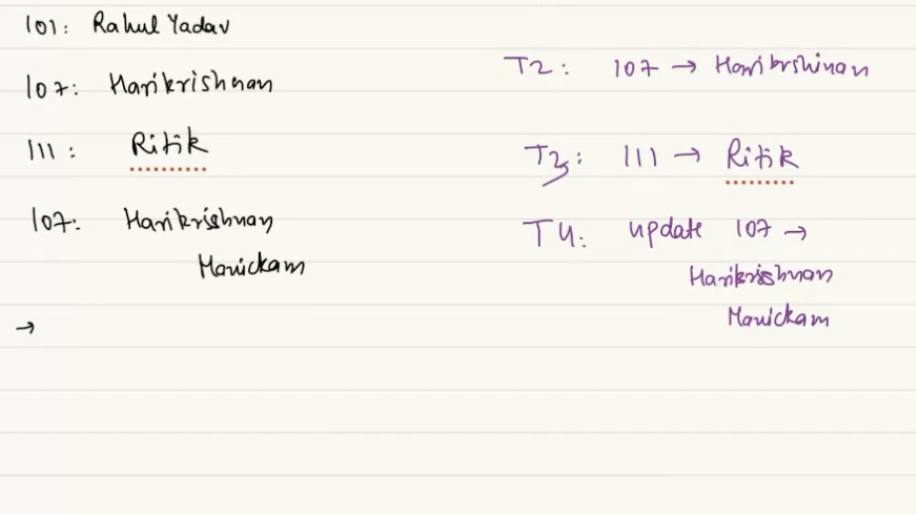 101: Rahul Yadav
107: Harikrishnan
111: Ritik
107: Harikrishnan
Manickam
→
T2: 107 → Harikrshinan
T3: 111 → Ritik
T4: update 107 →
Harikrishnan
Manickam